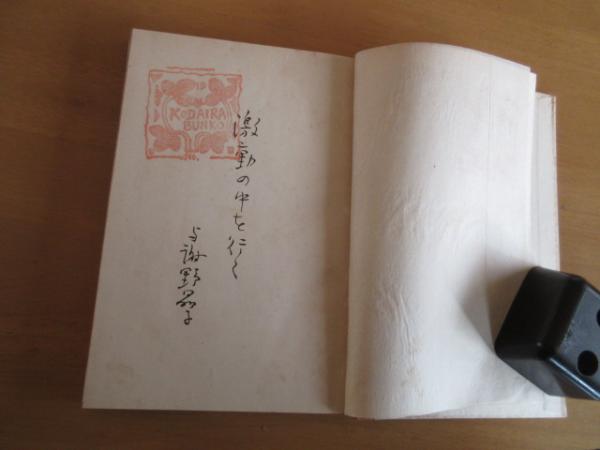 KODAIRA
BUNKO
激動の中を行く
与謝野晶子